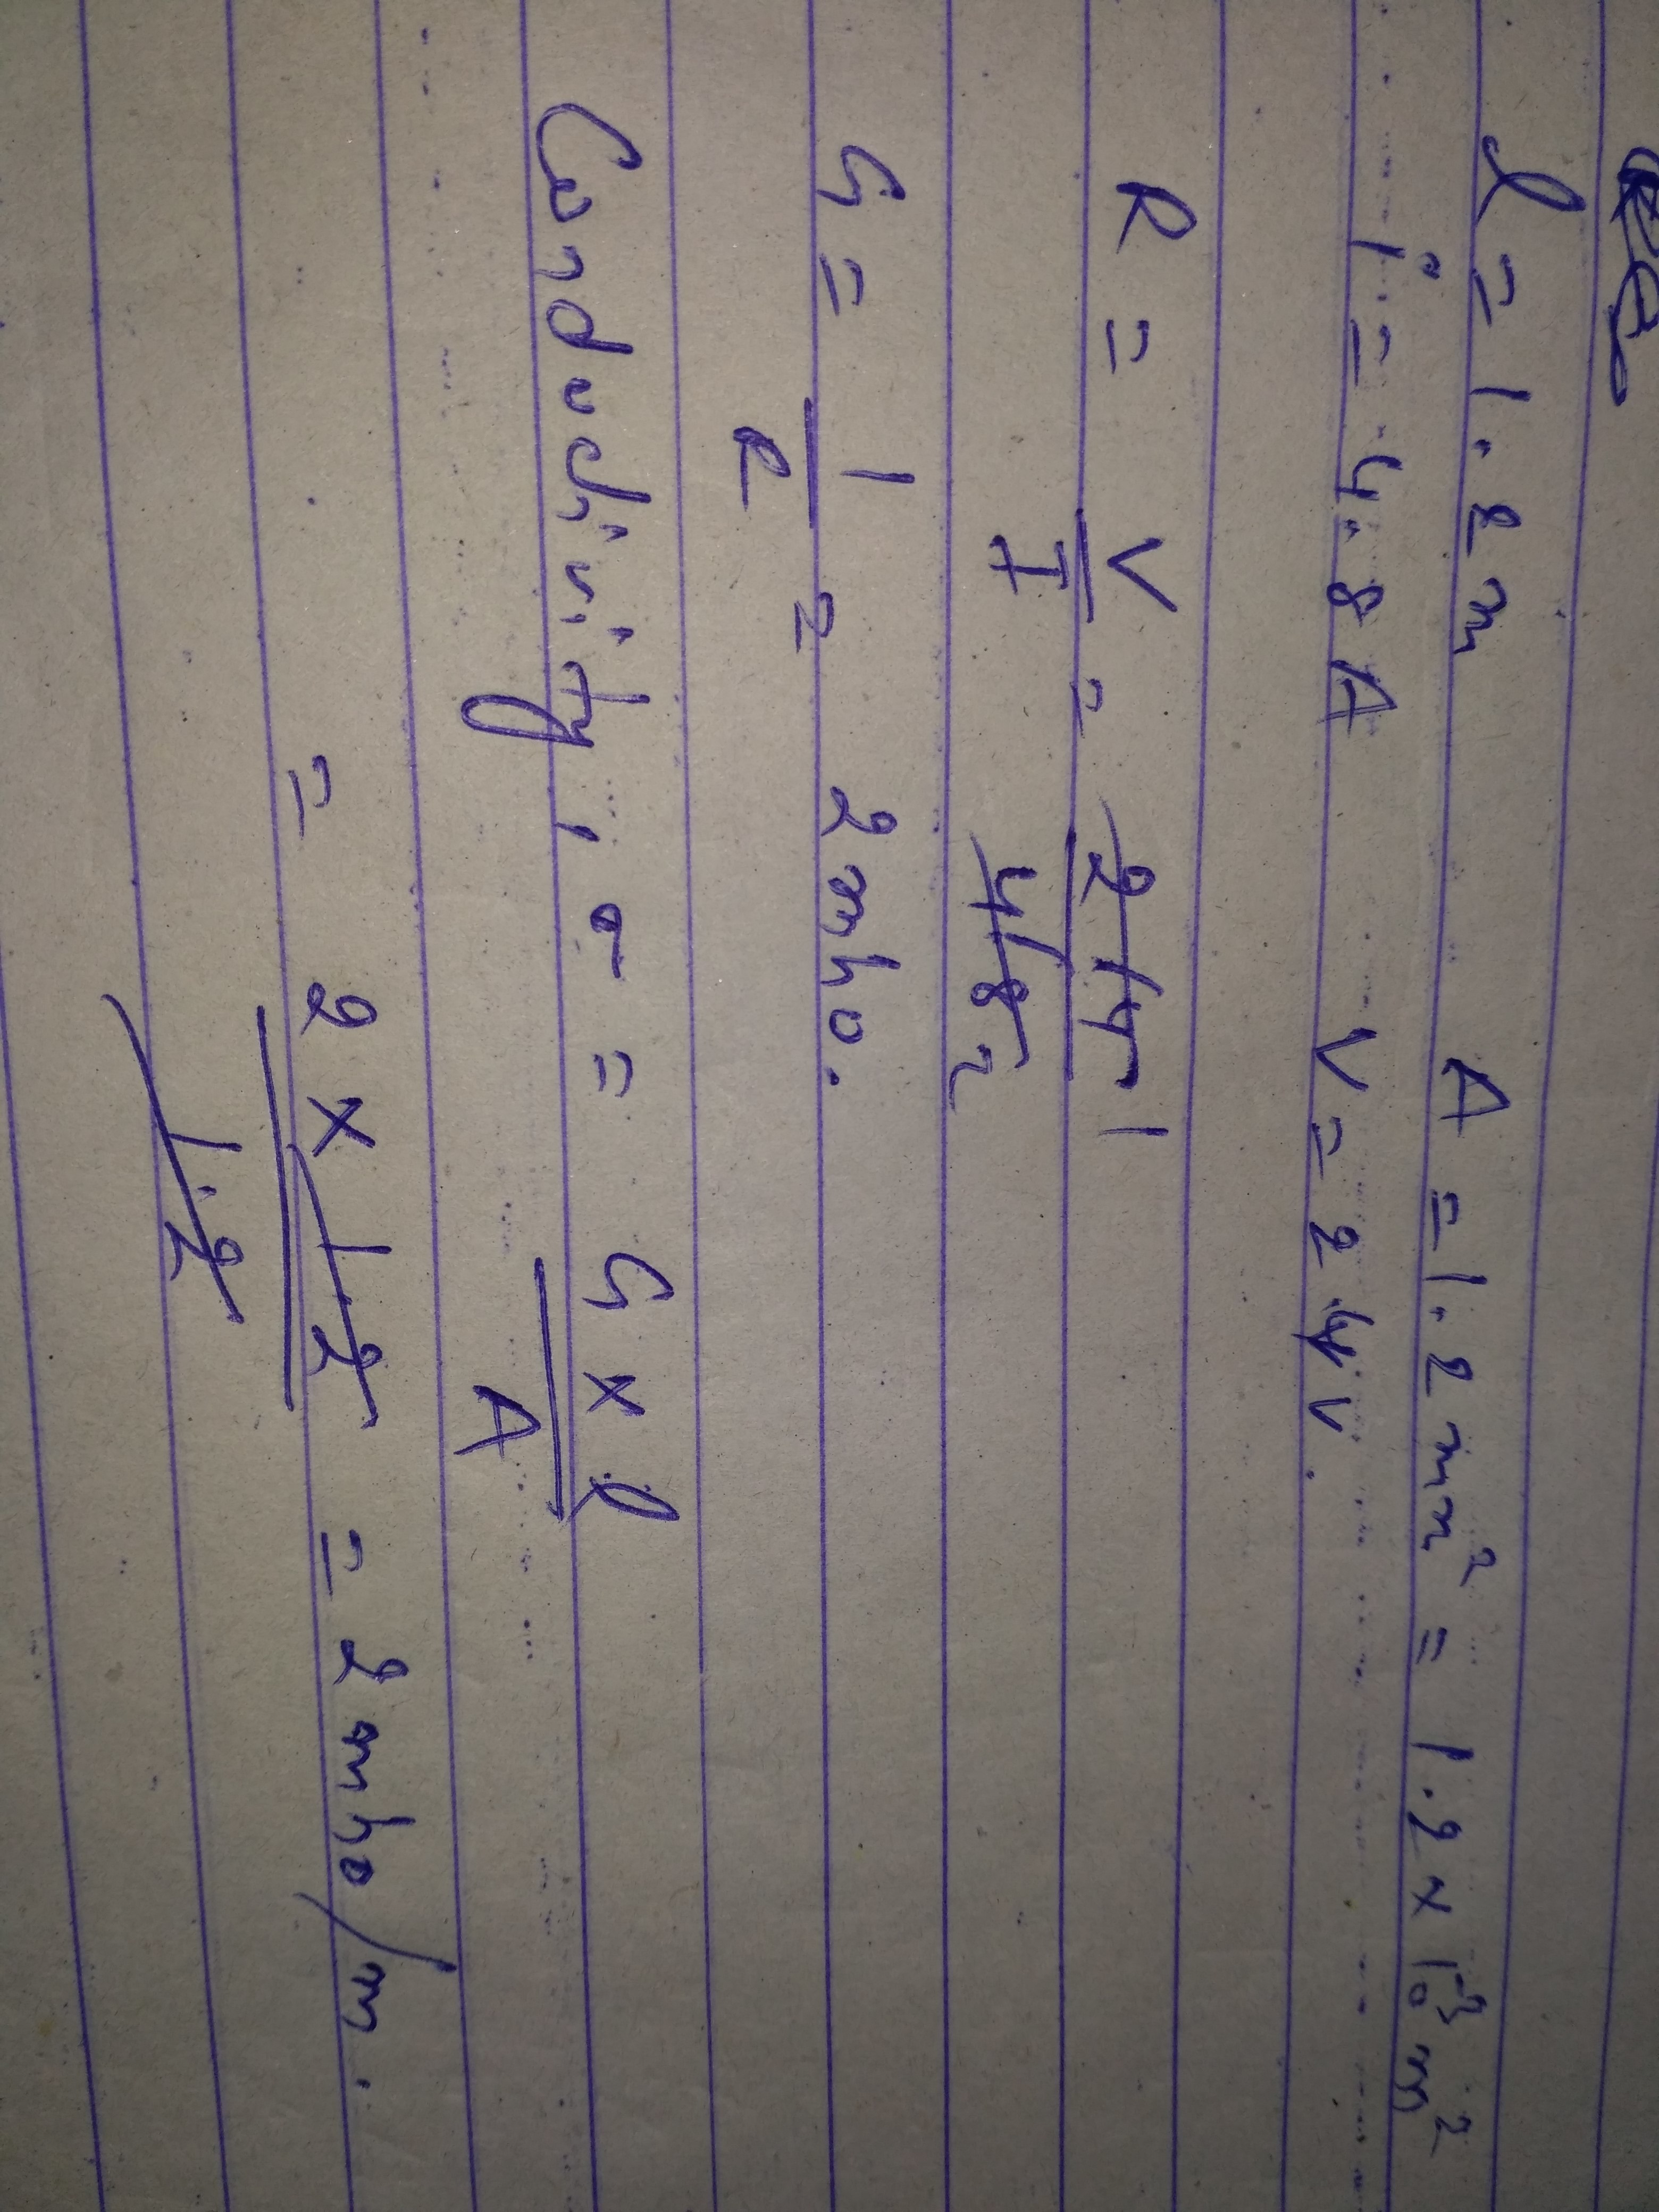 l = 1.2m A = 1.2 mm² = 1.2 × 10⁻³ m²
i = 4.8 A V = 2.4 V.
R = V/I = 2.4/4.8 1/2
G = 1/R = 2 mho.
Conductivity, σ = G × l / A
= 2 × 1.2 / 1.2 = 2 mho/m.